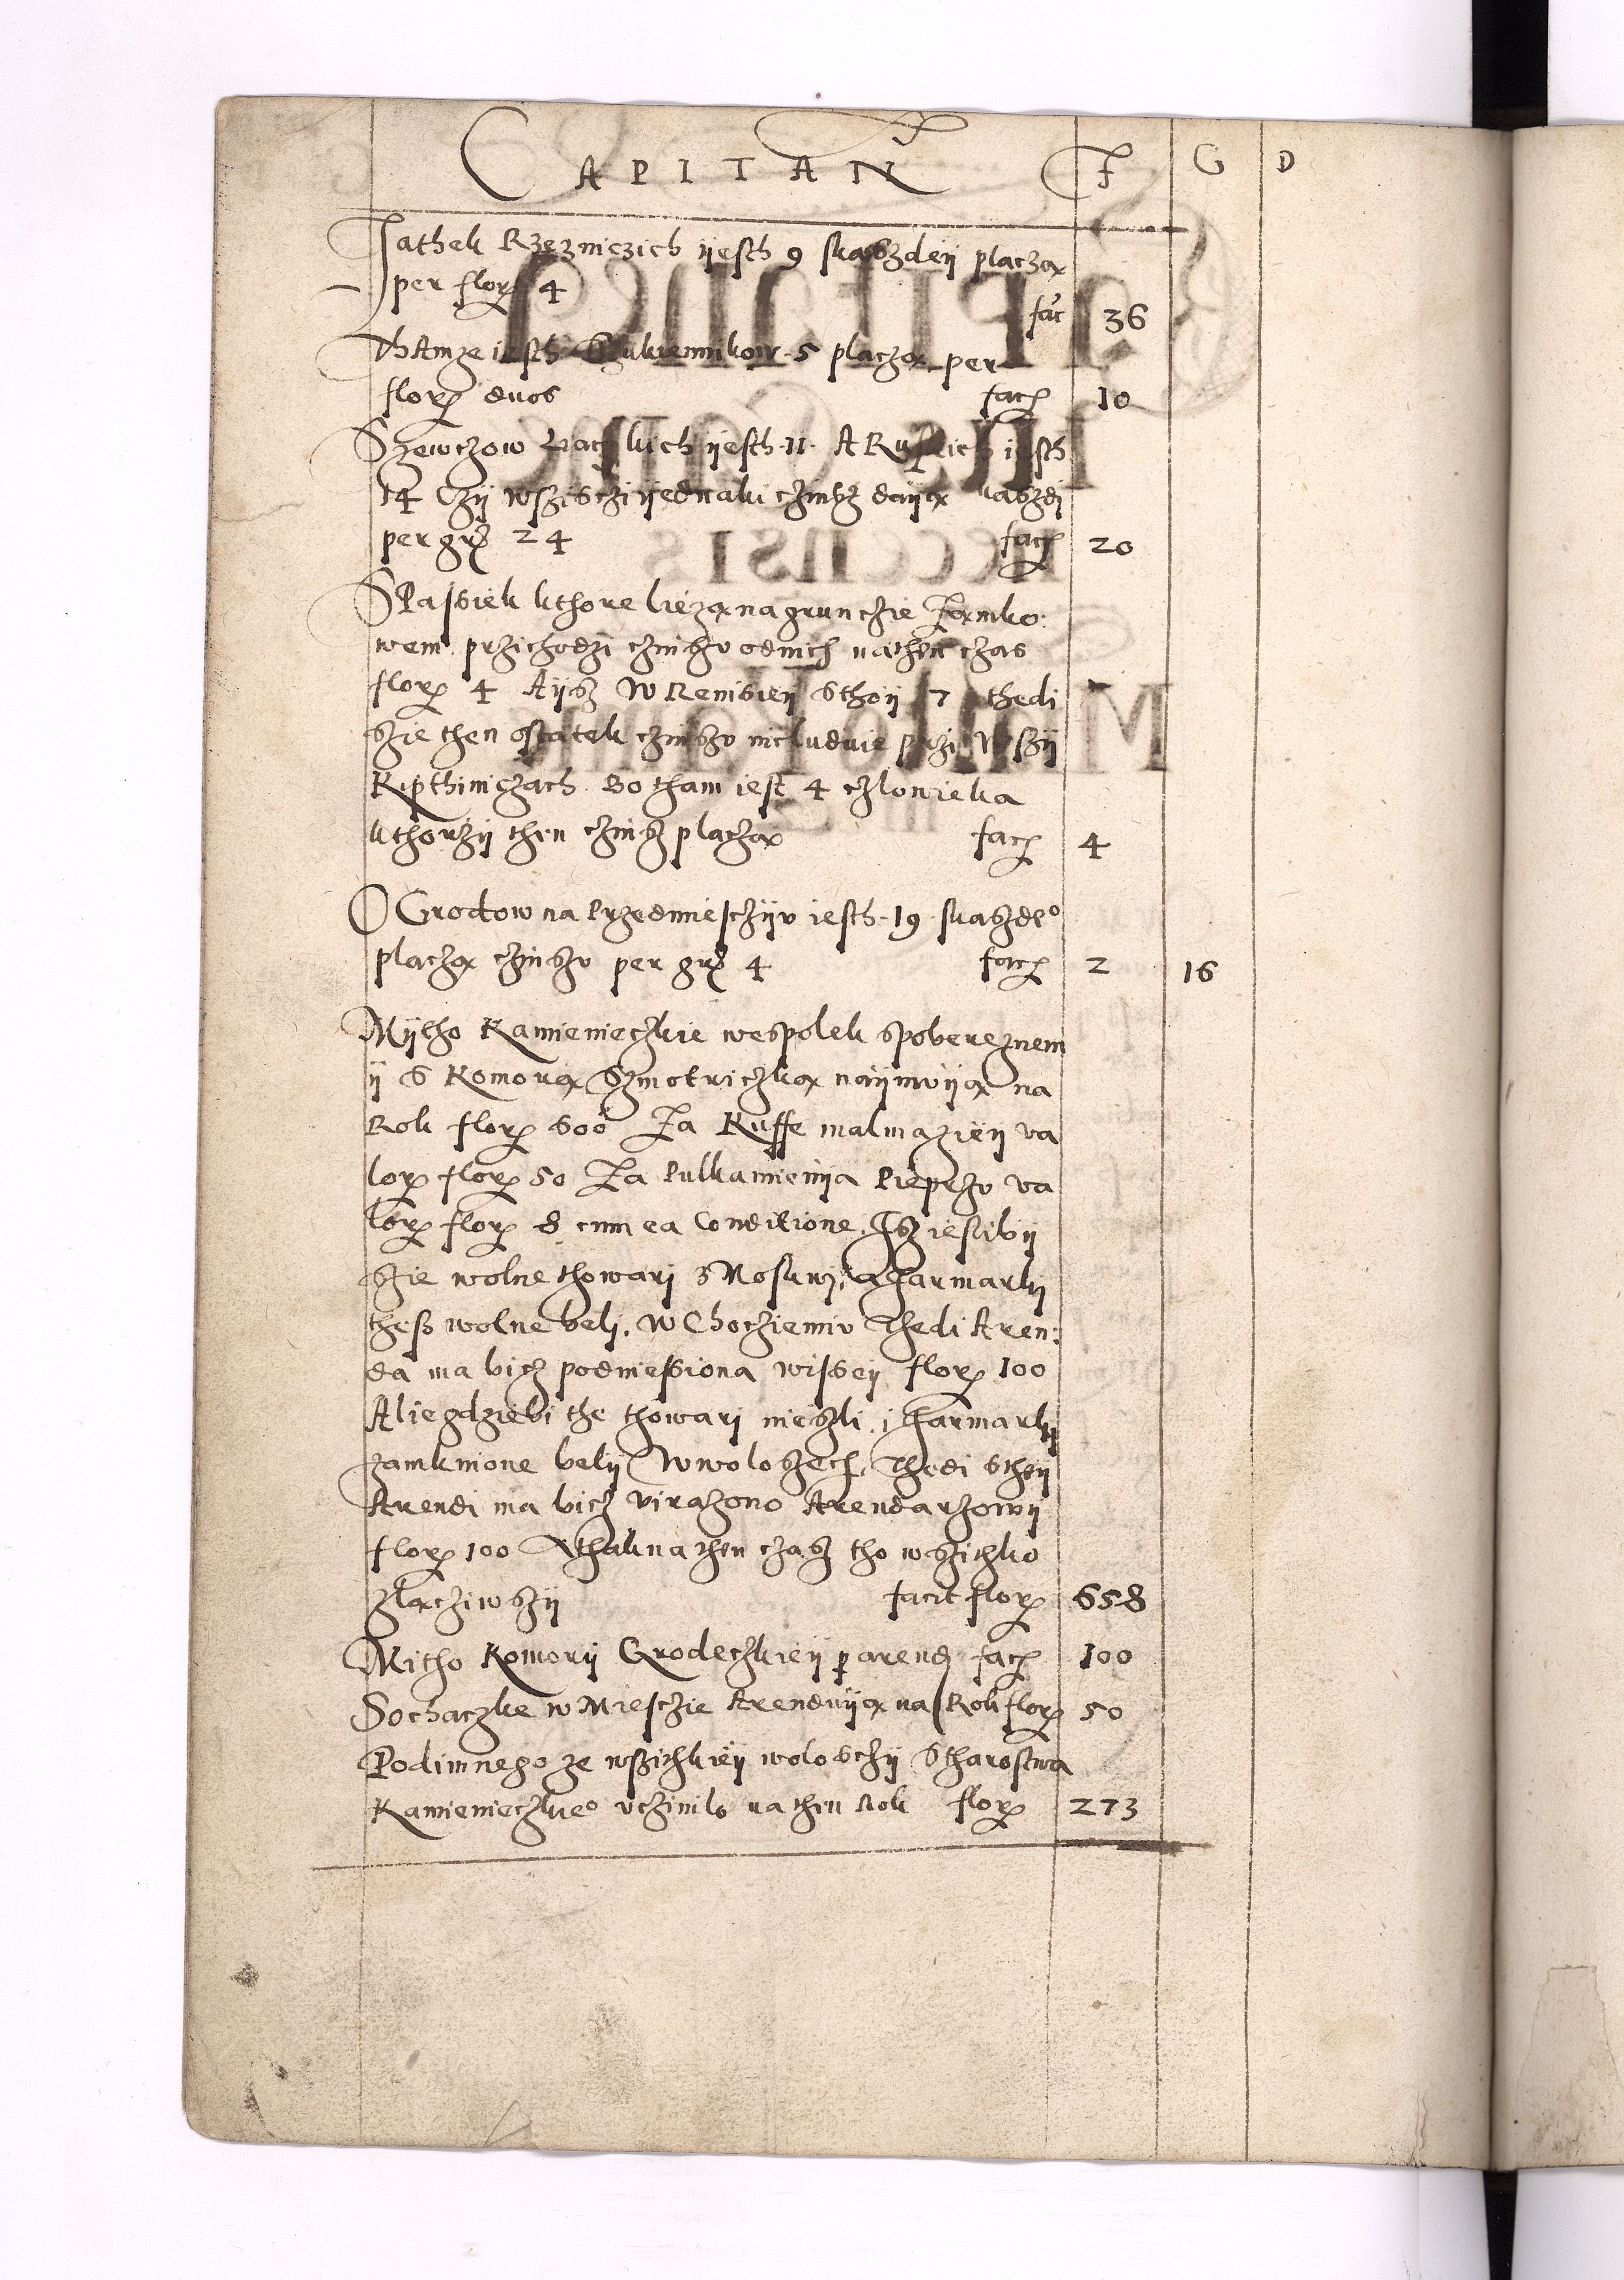 CAPITAN F G D
Jathek Rzezniczich ijesth 9 skaszdeij placzą
per floꝝ 4 fac 36
Thamze iesth Sukiennikow 5 placzą per
floꝝ duos facꝭ 10
Szewczow Laczkich ijesth 11 A Ruskich iesth
14 Czij wszisczi ijednaki czinsz daiją kaszdi
per grꝭ 24 facꝭ 20
SPassiek kthore liezą na grunczie Zamko:
wem przichodzi czinszu odnich nathen czas
floꝝ 4 Aijsz W Remisieij sthoij 7 thedi
szie then ostatek czinszu includuie przi Wsij
Kipthinczach Bo tham iest 4 czlowieka
kthorzij then czinsz placzą facꝭ 4
OGrodow na Przedmiesczijv iesth 19 skaszdeº
placzą czinszu per grꝭ 4 facꝭ 2 16
Mijtho Kamienieczkie wespolek spobereznem
ij s Komorą Szmotriczką naijmuiją na
Rok floꝝ 600 Za Kuffe malmazieij va
loꝝ floꝝ 50 Za Pulkamienija Pieprzu va
loꝝ floꝝ 8 cum ea Conditione, Isz iesliby
szie wolne thowari s Moskwi, a Jarmarki
thesz wolne beli, W Chocziemiu Thedi Aren:
da ma bicz podniesiona wissej floꝝ 100
Aliegdziebi the thowari nieszli, i Jarmarkij
zamknione belij Wwoloszech, Thedi sthej
Arendi ma bicz virazono Arendarzowij
floꝝ 100 Athak na then czasz tho wszithko
zlacziwszij facit floꝝ 658
Mitho Komorij Grodeczkieij ꝑ arend facꝭ 100
Sochaczke w Miesczie Arenduiją na Rok floꝝ 50
Podimnego ze wszithkieij wolosczij Stharostwa
Kamienieczkieº vczinilo na then Rok floꝝ 273